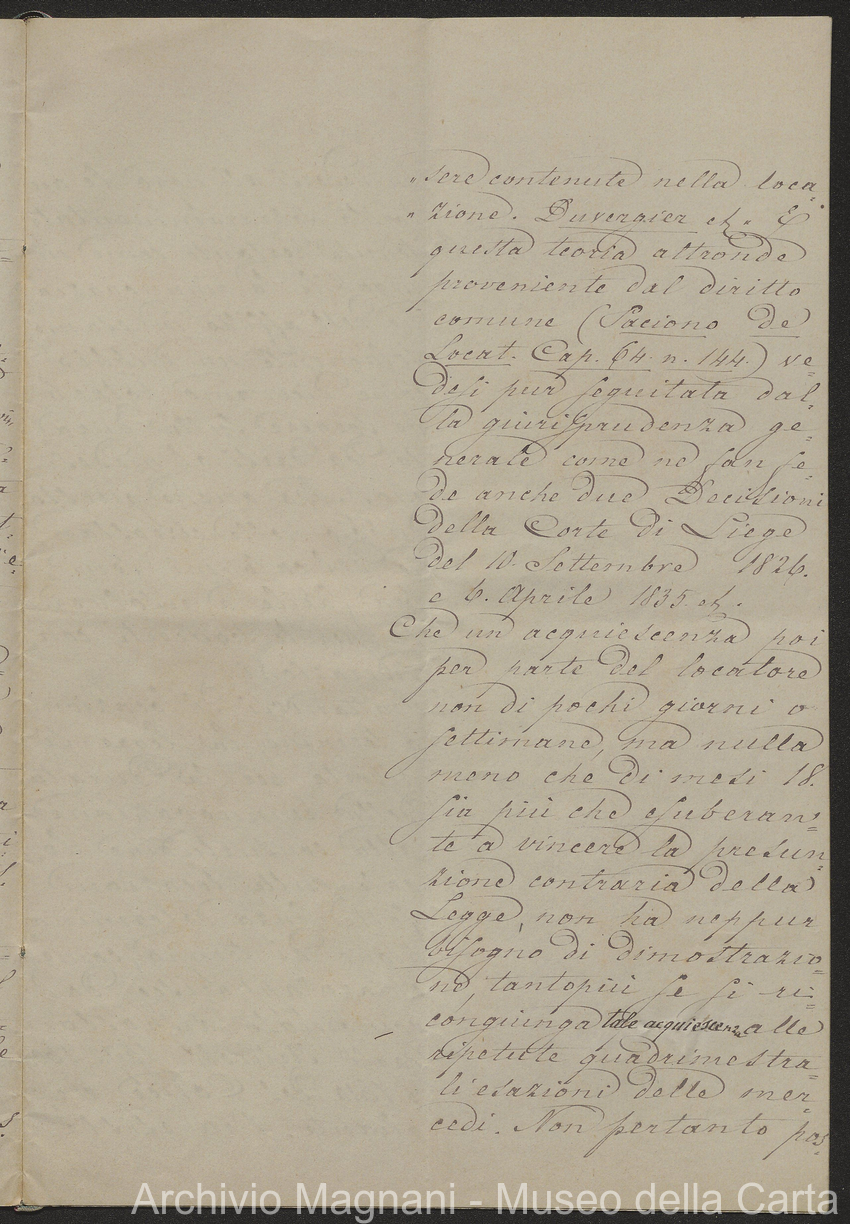 „ sere contenute nella loca=
„ zione. Duvergier et. „ E
questa teoria altronde
proveniente dal diritto
comune (Paciono De
Locat. Cap. 64. n. 144.) ve=
desi pur seguitata dal=
la giurisprudenza ge=
nerale come ne fan fe=
de anche due Decisioni
della Corte di Liege
del 10. Settembre 1826.
e 6. Aprile 1835. et.
Che un acquiescenza poi
per parte del locatore
non di pochi giorni o
settimane, ma nulla
meno che di mesi 18.
sia più che esuberan=
te a vincere la presun=
zione contraria della
Legge, non ha neppur
bisogno di dimostrazio=
ne, tantopiù se si ri=
congiunga tale acquiescenza alle
ripetute quadrimestra=
li esazioni delle mer=
cedi. Non pertanto pos=
Archivio Magnani - Museo della Carta